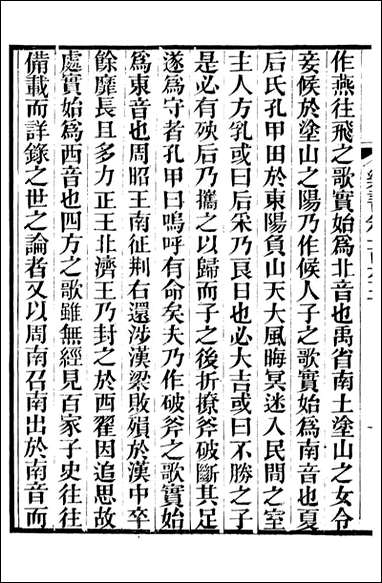 作燕往飛之歌實始爲北音也禹省南土塗山之女令
妾候於塗山之陽乃作候人子之歌實始爲南音也夏
后氏孔甲田於東陽負山天大風晦冥迷入民間之室
主人方乳或曰后來乃良日也必大吉或曰不勝之子
是必有殃后乃攜之以歸而子之後折撩斧破斷其足
遂爲守者孔甲曰嗚呼有命矣夫乃作破斧之歌實始
爲東音也周昭王南征荆右還涉漢梁敗殞於漢中卒
餘靡長且多力正王北濟王乃封之於西翟因追思故
處實始爲西音也四方之歌雖無經見百家子史往往
備載而詳錄之世之論者又以周南召南出於南音而